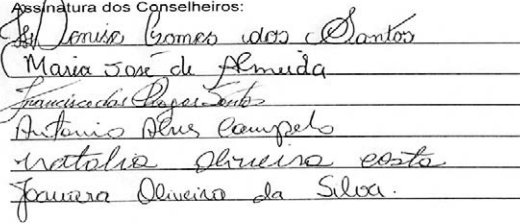 Assinatura dos Conselheiros:
Denise Gomes dos Santos
Maria José de Almeida
Francisco das Chagas Santos
Antonio Alves Campelo
Natalia Oliveira Costa
Joavara Oliveira da Silva.